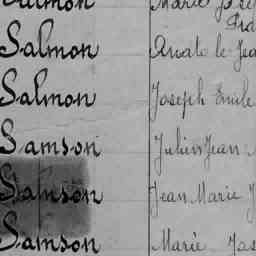 Marie
Salmon Anatole Jea
Salmon Joseph Emile
Samson Julien Jean
Samson Jean Marie J
Samson Marie Jos